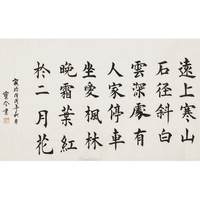 遠上寒山
石径斜白
雲深處有
人家停車
坐愛楓林
晚霜葉紅
於二月花